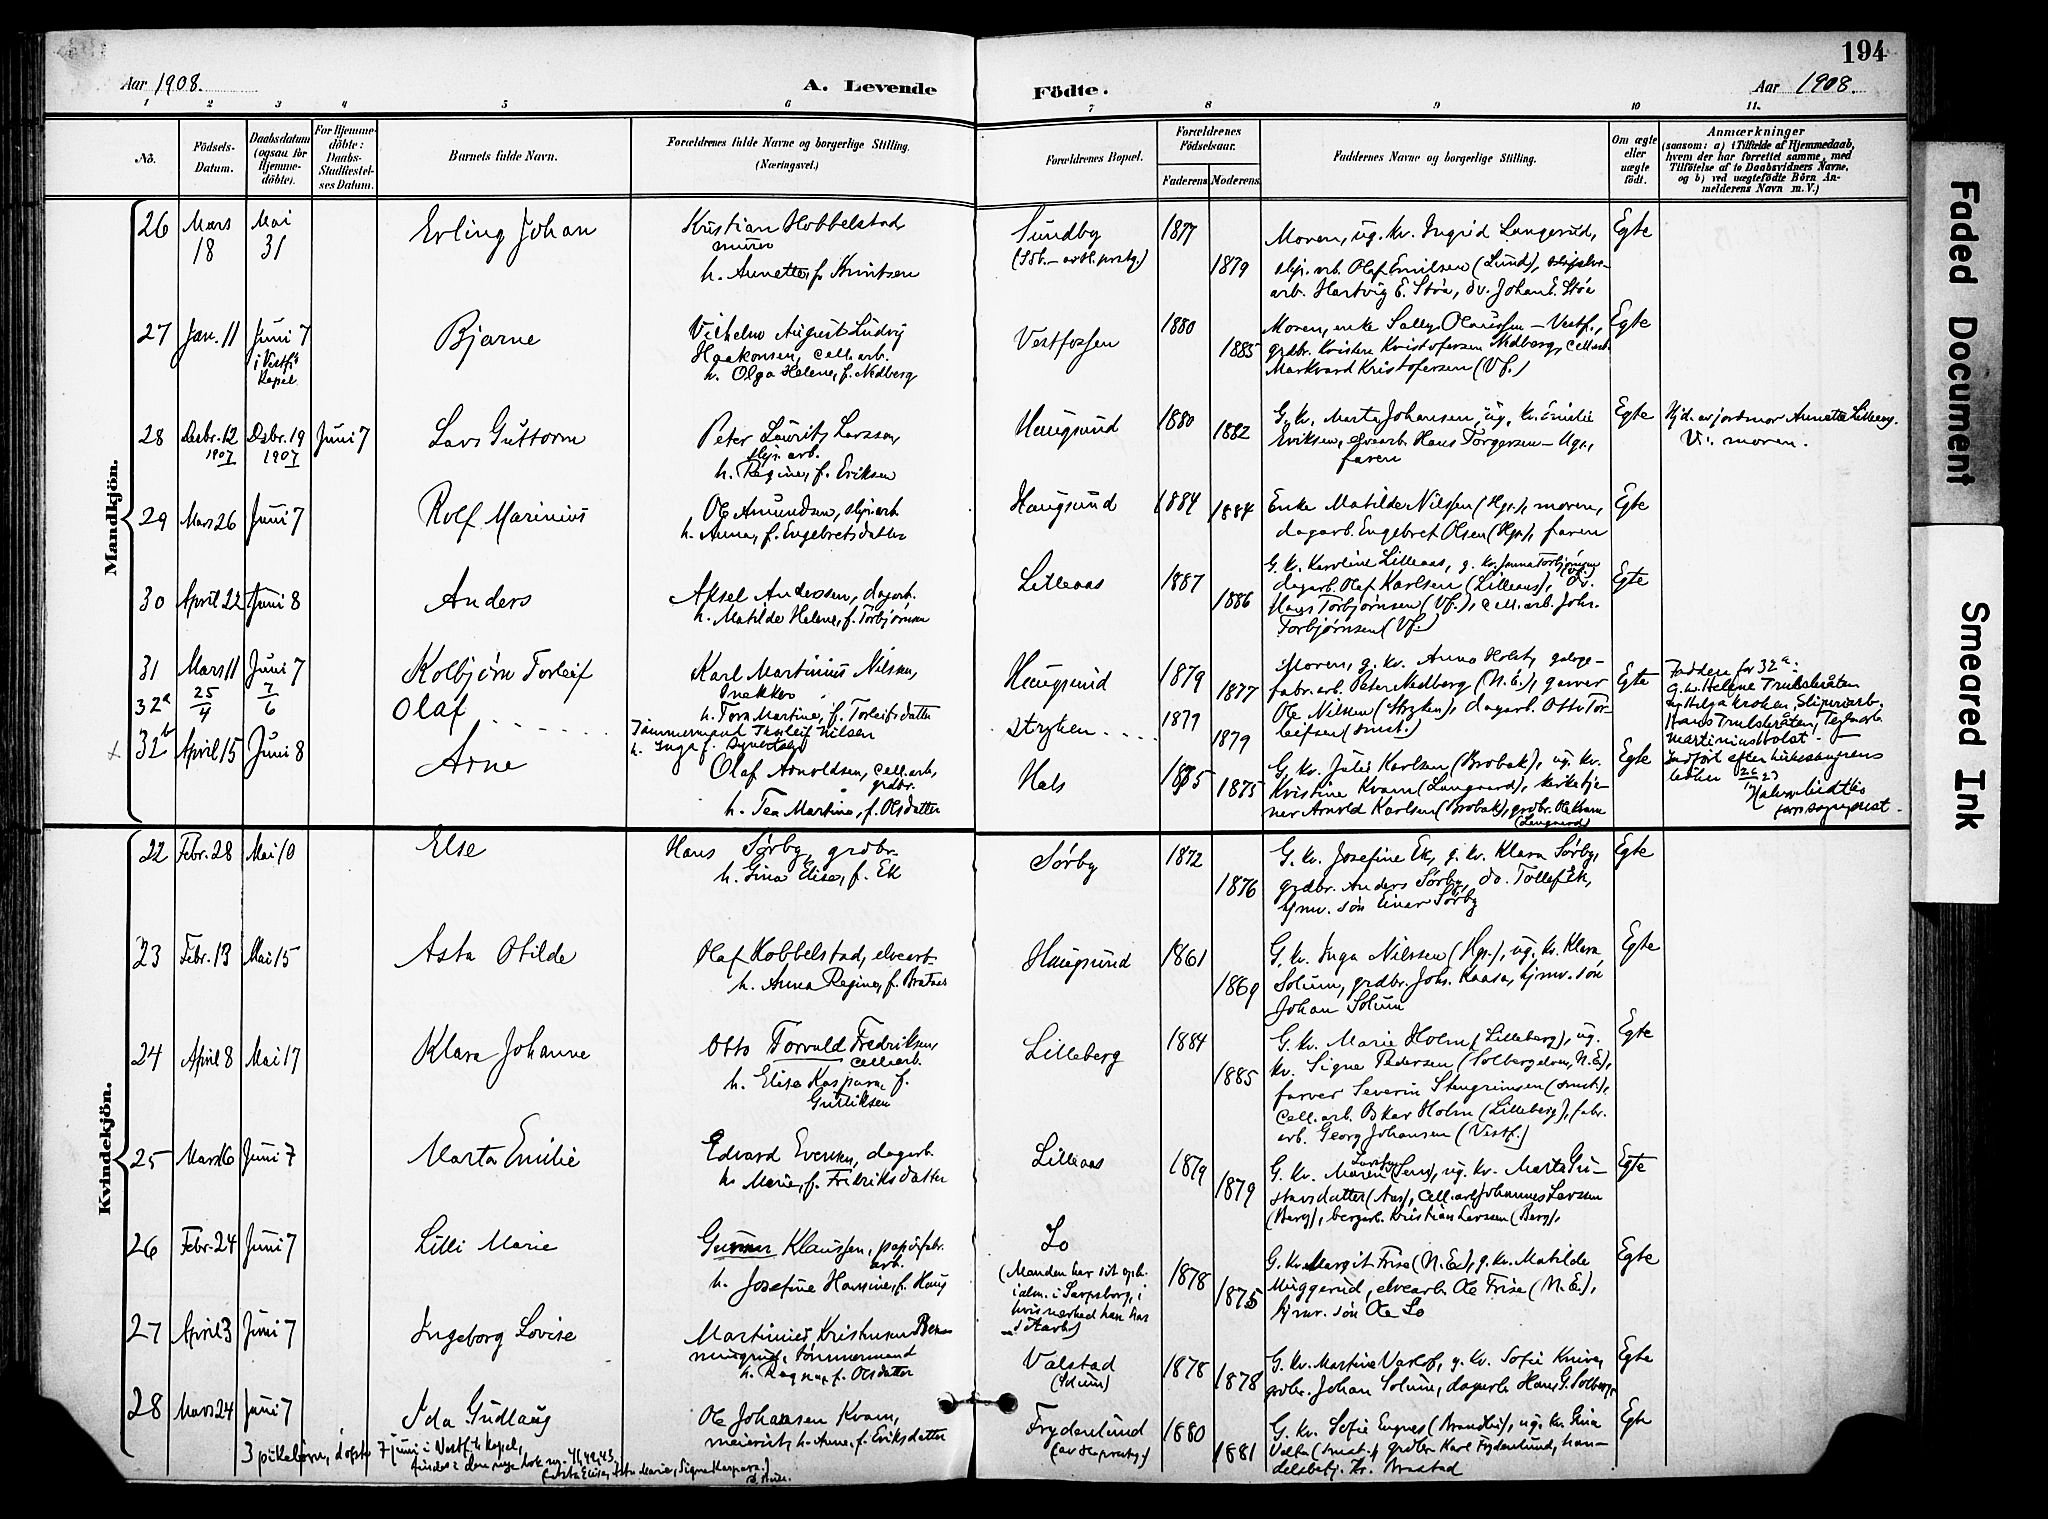 194
Aar 1908.
A. Levende Födte.
Aar 1908.
1 2 3 4 5 6 7 8 9 10 11.
No.
Födsels-Datum.
Daabsdatum (ogsaa for Hjemme-döbte).
For Hjemme-döbte: Daabs-Stadfæstel-ses Datum.
Barnets fulde Navn.
Forældrenes fulde Navne og borgerlige Stilling.
(Næringsvei.)
Forældrenes Bopæl.
Forældrenes Födselsaar.
Faderens. Moderens.
Faddernes Navne og borgerlige Stilling.
Om ægte eller uægte födt.
Anmærkninger
(saasom: a) i Tilfælde af Hjemmedaab,
hvem der har forrettet samme, med
Tilföielse af to Daabsvidners Navne,
og b) ved uægtefödte Börn An-
melderens Navn m. V.)
Mandkjön.
26 Mars 18 Mai 31 Erling Johan
Kristian Hobbelstad,
murer
h. Annette, f. Knutsen
Sundby
1877 1879
Moren, ug. kv. Ingrid Langerud,
slip. arb. Olaf Emilsen (Lund),
arb. Hartvig E. Støa, do. Johan E. Støa
Egte
27 Jan. 11 Juni 7 i Vestf. kapel Bjarne
Vilhelm August Ludvig
Haakonsen, cell. arb.
h. Olga Helene, f. Nedberg
Vestfossen
1880 1885
Moren, enke Sally Olaussen - Vestf.,
grdbr. Kristen Kristofersen Nedberg, cell. arb.
Markvard Kristofersen (Vf.)
Egte
28 Decbr. 12 1907 Dcbr. 19 1907 Juni 7 Lars Guttorm
Peter Lauritz Larsson,
slip. arb.
h. Regine, f. Eriksen
Haugsund
1880 1882
G. kv. Marta Johansen, ug. kv. Emilie
Eriksen, elvearb. Hans Torgersen - Hgs.,
faren
Egte
Hjd. av jordmor Annette Lilleaas.
V.: moren.
29 Mars 26 Juni 7 Rolf Marinius
Ole Amundsen, slip. arb
h. Anna, f. Engebretsdatter
Haugsund
1884 1884
Enke Matilde Nilsen (Hgs.), moren,
dagarb. Engebret Olsen (Hgs), faren
Egte
30 April 22 Juni 8 Anders
Aksel Anderssen, dagarb.
h. Matilde Helene, f. Torbjørnsen
Lilleaas
1887 1886
G. kv. Karoline Lilleaas, g. kv. Anna Torbjørnsen (Vf.)
dagarb. Olaf Karlsen (Lilleaas), do.
Hans Torbjørnsen (Vf.), cell. arb. Johs.
Torbjørnsen (Vf.)
Egte
31 Mars 11 Juni 7 Kolbjørn Torleif
Karl Martinius Nilsen,
snekker
h. Tora Martine, f. Torleifsdatter
Haugsund
1879 1877
Moren, g. kv. Anna Holst,
fabr. arb. Peter Nedberg (N.E.), garver
Ole Nilsen (Stryken), dagarb. Otto Tor-
leifsen (smst.)
Egte
32a 25/4 7/6 Olaf
Tømmermand Thorleif Nilsen
h. Inga f. Syvertsen
Stryken
1879 1879
Faddere for 32a:
G. kv. Helene Trulsbråten
Martinius Holst. -
Indført efter kirkesangerens
+ 32b April 15 Juni 8 Arne
Olaf Arnoldsen, cell. arb,
grdbr.
h. Tea Martine, f. Olsdatter
Hals
1875 1875
G. kv. Julie Karlsen (Brobak), ug. kv.
Kristine Kvam (Langaard), kirketje-
ner Arnold Karlsen (Brobak), grdbr. Ole Kvam
(Langaard)
Egte
sogneprest.
Kvindekjön.
22 Febr. 28 Mai 10 Else
Hans Sørby, grdbr.
h. Gina Elise, f. Ek
Sørby
1872 1876
G. kv. Josefine Ek, g. kv. Klara Sørby,
grdbr. Anders Sørby, do. Tollef Ek,
hjmv. søn Einar Sørby
Egte
23 Febr. 13 Mai 15 Asta Otilde
Olaf Hobbelstad, elvearb.
h. Anna Regine, f. Bratnes
Haugsund
1861 1869
G. kv. Inga Nilssen (Hgs.), ug. kv. Klara
Solum, grdbr. Johs. Kaasa, hjmv. søn
Johan Solum
Egte
24 April 8 Mai 17 Klara Johanne
Otto Torvald Fredriksen,
cell. arb.
h. Elise Kaspara, f.
Gulliksen
Lilleberg
1884 1885
G. kv. Marie Holm (Lilleberg), ug.
kv. Signe Pedersen (Solbergelven, N.E.),
farver Severin Stengrimsen (smst.),
cell. arb. Oskar Holm (Lilleberg), fabr.
arb. Georg Johansen (Vestf.)
Egte
25 Mars 16 Juni 7 Marta Emilie
Edvard Evensen, dagarb.
h. Marie, f. Fredriksdatter
Lilleaas
1879 1879
G. kv. Maren Larsen, ug. kv. Marta Gu-
stavsdatter (Aas), cell. arb Johannes Larssen
(Berg), bergarb. Kristian Larssen (Berg),
Egte
26 Febr. 24 Juni 7 Lilli Marie
Gunnar Klaussen, papirfabr.
arb.
h. Josefine Hansine, f. Haug
Lo
(Manden har sit oph.
i alm. i Sarpsborg, i
hvis nærhed han har
sit arb.)
1878 1875
G. kv. Margit Frise (N.E.), g. kv. Matilde
Muggerud, elvearb. Ole Frise (N.E.),
hjmv. søn Ole Lo
Egte
27 April 3 Juni 7 Ingeborg Lovise
Martinius Kristiansen
tømmermand
h. Ragna, f. Olsdatter
Valstad
(Solum)
1878 1878
G. kv. Martine g. kv. Sofie Knive,
grdbr. Johan Solum, dagarb. Hans G. Solberg,
Egte
28 Mars 24 Juni 7 Ida Gudlaug
Ole Johansen Kvam,
meierist, h. Anne, f. Eriksdatter
Frydenlund
1880 1881
G. kv. Sofie Engnes (Brandlid), ug. kv. Gina
(smst.), grdbr. Karl Frydenlund, han-
delsbetj. Kr. Brastad
Egte
3 pikebørn, døpte 7 juni i Vestf. kapel,
findes i den nye bok nr. 41, 42, 43
(Asta Elise, Asta Marie, Signe Kaspara.)
Faded Document
Smeared Ink